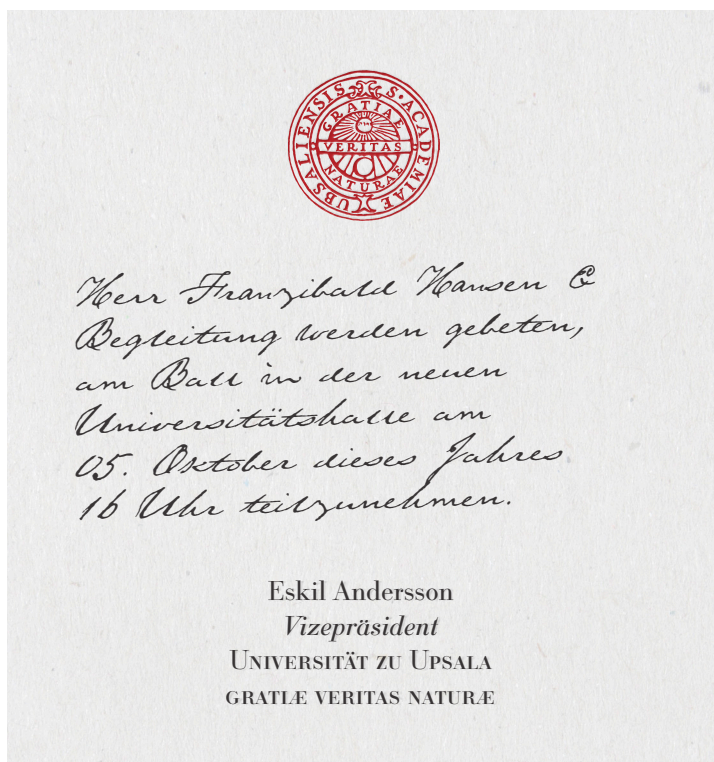 S · ACADEMIAE UBSALIENSIS
GRATIAE
VERITAS
NATURAE
Herr Franzibald Hansen &
Begleitung werden gebeten,
am Ball in der neuen
Universitätshalle am
05. Oktober dieses Jahres
16 Uhr teilzunehmen.
Eskil Andersson
Vizepräsident
UNIVERSITÄT ZU UPSALA
GRATIÆ VERITAS NATURÆ